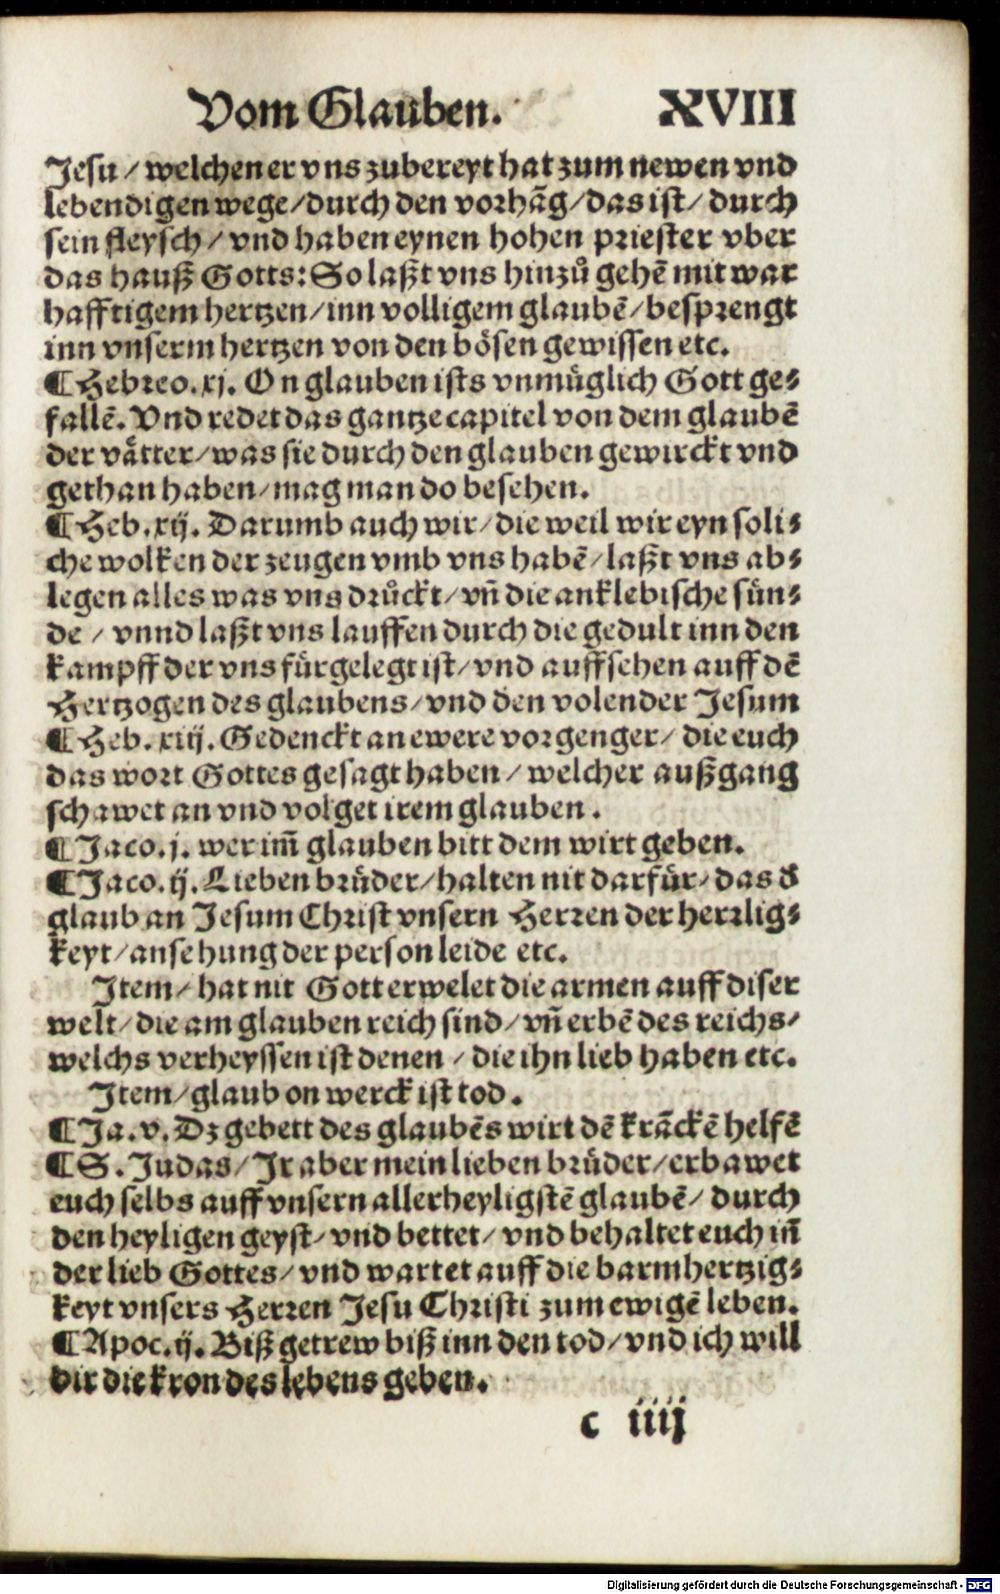 Vom Glauben. XVIII
Jesu / welchen er vns zubereyt hat zum newen vnd
lebendigen wege/durch den vorhãg/das ist/ durch
sein fleysch / vnd haben eynen hohen priester vber
das hauß Gotts: So laßt vns hinzů gehẽ mit war
hafftigem hertzen/inn volligem glaubẽ/besprengt
inn vnserm hertzen von den bösen gewissen etc.
¶ Hebreo. xj. On glauben ists vnmüglich Gott ge⸗
fallẽ. Vnd redet das gantze capitel von dem glaubẽ
der vätter/was sie durch den glauben gewirckt vnd
gethan haben/mag man do besehen.
¶ Heb. xij. Darumb auch wir/die weil wir eyn soli⸗
che wolken der zeugen vmb vns habẽ/laßt vns ab⸗
legen alles was vns drůckt/vñ die anklebische sün⸗
de / vnnd laßt vns lauffen durch die gedult inn den
kampff der vns fürgelegt ist/vnd auffsehen auff dẽ
Hertzogen des glaubens/vnd den volender Jesum
¶ Heb. xiij. Gedenckt an ewere vorgenger/ die euch
das wort Gottes gesagt haben / welcher außgang
schawet an vnd volget irem glauben .
¶ Jaco. j. wer im̃ glauben bitt dem wirt geben.
¶ Jaco. ij. Lieben brüder/halten nit darfür/das d̕
glaub an Jesum Christ vnsern Herren der herrlig⸗
keyt/ansehung der person leide etc.
Item/hat nit Gott erwelet die armen auff diser
welt/die am glauben reich sind/vñ erbẽ des reichs/
welchs verheyssen ist denen / die ihn lieb haben etc.
Item/glaub on werck ist tod .
¶ Ja. v. Dz gebett des glaubẽs wirt dẽ krãckẽ helfẽ
¶ S. Judas/Ir aber mein lieben brüder/erbawet
euch selbs auff vnsern allerheyligstẽ glaubẽ/ durch
den heyligen geyst/vnd bettet/vnd behaltet euch iñ
der lieb Gottes/vnd wartet auff die barmhertzig⸗
keyt vnsers Herren Jesu Christi zum ewigẽ leben.
¶ Apoc. ij. Biß getrew biß inn den tod/vnd ich will
dir die kron des lebens geben.
c iiij
Digitalisierung gefördert durch die Deutsche Forschungsgemeinschaft - DFG